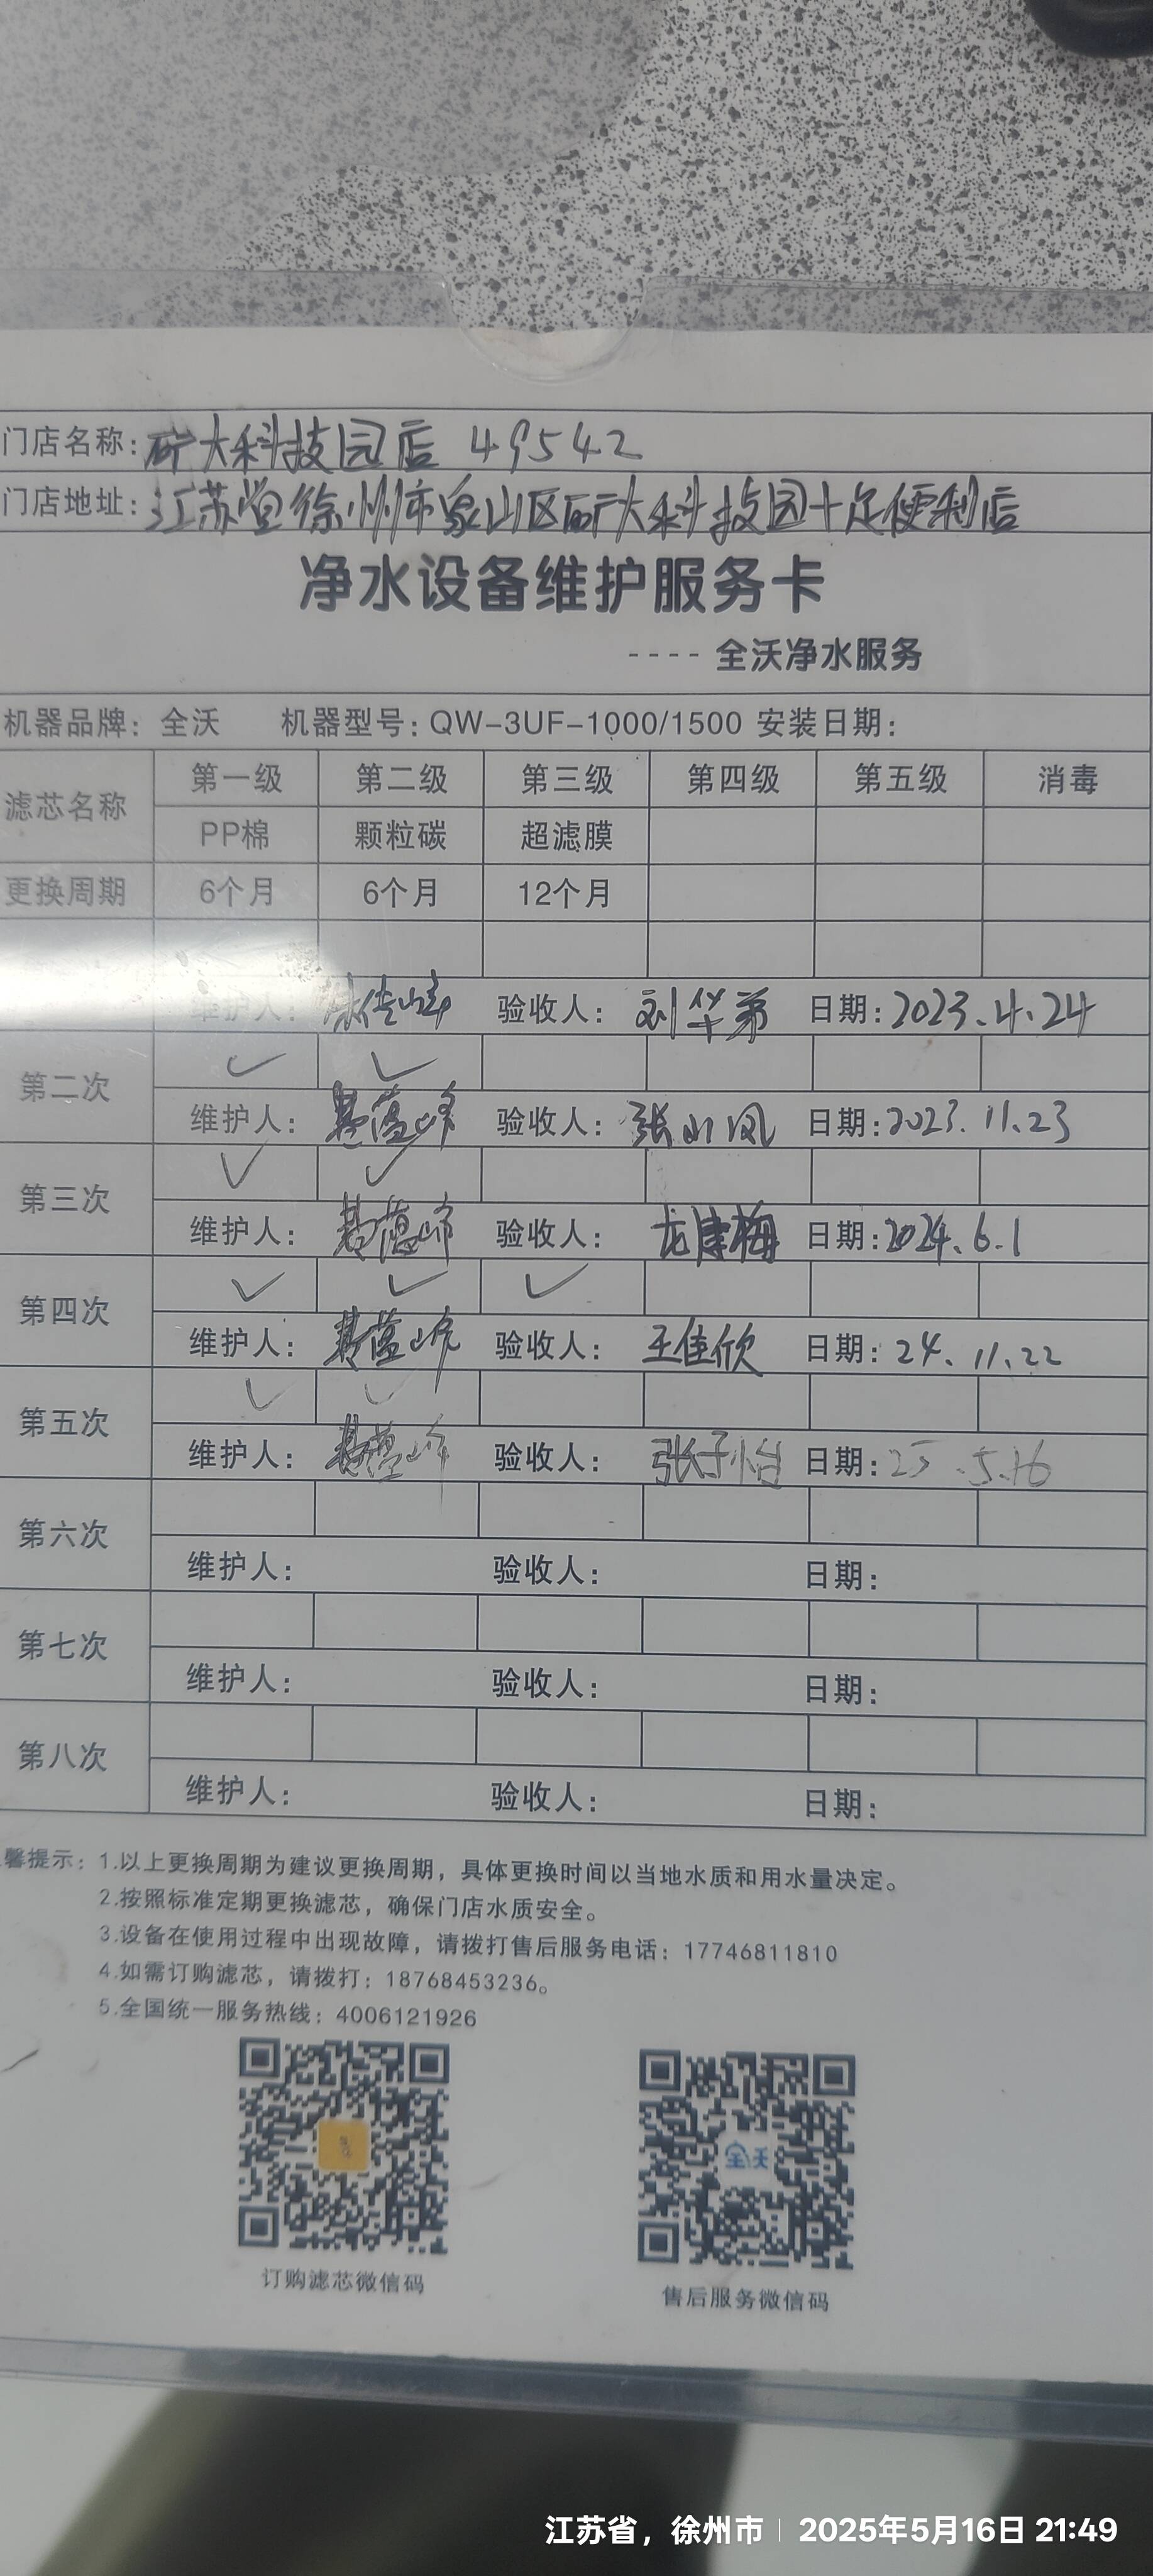 门店名称：矿大科技园店 49542
门店地址：江苏省徐州市泉山区矿大科技园十足便利店
净水设备维护服务卡
---- 全沃净水服务
机器品牌：全沃 机器型号：QW-3UF-1000/1500 安装日期：
滤芯名称 第一级 第二级 第三级 第四级 第五级 消毒
PP棉 颗粒碳 超滤膜
更换周期 6个月 6个月 12个月
维护人： 验收人：刘华弟 日期：2023.4.24
第二次 ✓ ✓
维护人： 验收人：张 凤 日期：2023.11.23
第三次 ✓ ✓
维护人： 验收人：龙康梅 日期：2024.6.1
第四次 ✓ ✓ ✓
维护人： 验收人：王佳欣 日期：24.11.22
第五次 ✓ ✓
维护人： 验收人：张子怡 日期：25.5.16
第六次
维护人： 验收人： 日期：
第七次
维护人： 验收人： 日期：
第八次
维护人： 验收人： 日期：
馨提示：1.以上更换周期为建议更换周期，具体更换时间以当地水质和用水量决定。
2.按照标准定期更换滤芯，确保门店水质安全。
3.设备在使用过程中出现故障，请拨打售后服务电话：17746811810
4.如需订购滤芯，请拨打：18768453236。
5.全国统一服务热线：4006121926
全沃
订购滤芯微信码 售后服务微信码
江苏省，徐州市 | 2025年5月16日 21:49